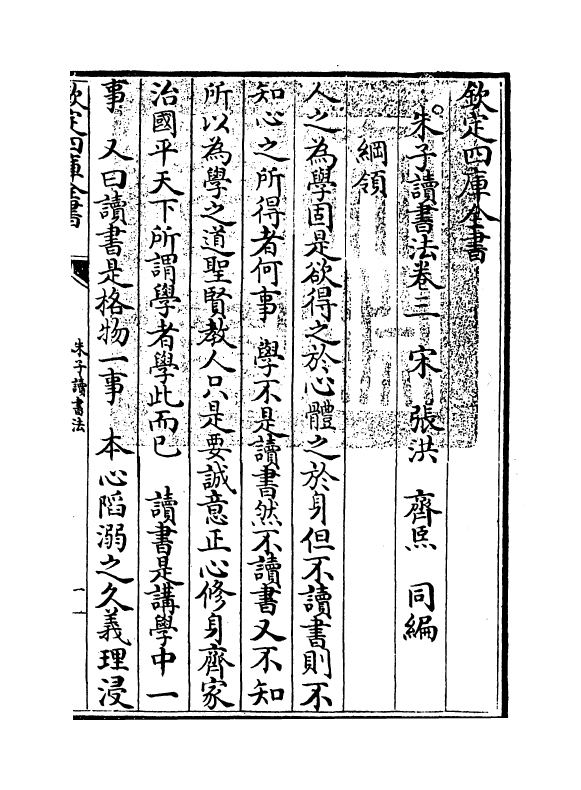 欽定四庫全書
朱子讀書法卷三　宋　張洪　齊𤋮　同編
綱領
人之為學固是欲得之於心體之於身但不讀書則不
知心之所得者何事　學不是讀書然不讀書又不知
所以為學之道聖賢教人只是要誠意正心修身齊家
治國平天下所謂學者學此而已　讀書是講學中一
事　又曰讀書是格物一事　本心陷溺之久義理浸
欽定四庫全書
朱子讀書法
一